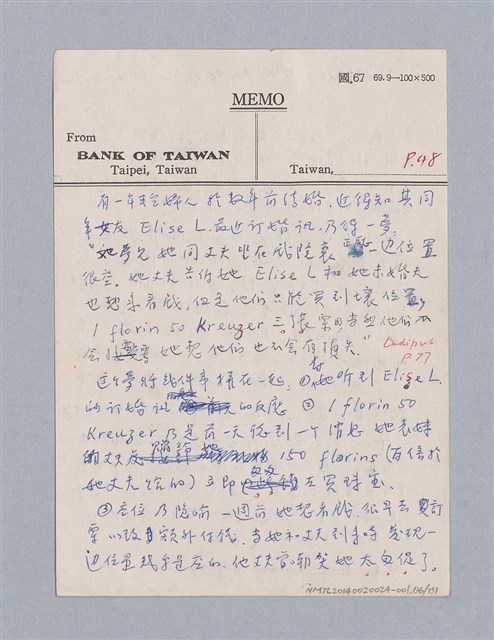 國.67 69.9—100×500
MEMO
From
BANK OF TAIWAN
Taipei, Taiwan
Taiwan,
P.98
有一年輕婦人 於數年前結婚, 近得知其同
年女友 Elise L. 最近訂婚訊, 乃得一夢:
"她夢見她同丈夫坐在戲院裏 一邊位置
很空. 她丈夫告訴她 Elise L 和她未婚夫
也想來看戲, 但是他們只能買到壞位置,
1 florin 50 Kreuzer 三張票 當然他們不
會要 她想他們也不會有損失."
Oedipus
P.77
這夢將幾件事 在一起: ① 她聽到 Elise L.
的訂婚訊 的反應 ② 1 florin 50
Kreuzer 乃是前一天得到一个消息 她表妹
丈夫 150 florins (
她丈夫給的) 去買珠宝.
③ 空位乃隐喻 一週前她想看戲, 很早去買訂
票 以致額外付錢, 當她和丈夫到時 發現一
邊位置幾乎是空的. 他丈夫嘲笑她太匆促了.
NMTL20140020024-001,136/151